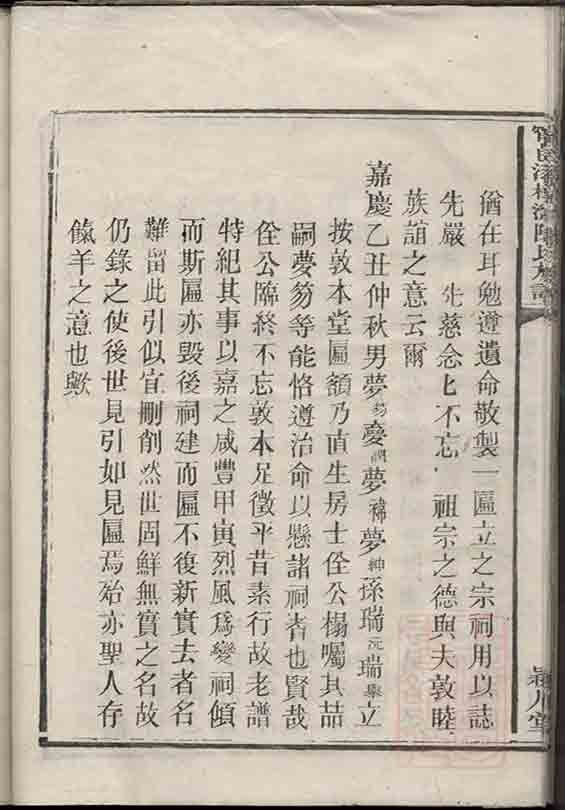 猶在耳勉遵遺命敬製一匾立之宗祠用以誌
先嚴 先慈念匕不忘 祖宗之德與夫敦睦
族誼之意云爾
嘉慶乙丑仲秋男夢笏慶夢夢紳孫瑞沅瑞立
按敦本堂匾額乃直生房士佺公揭囑其喆
嗣夢笏等能恪遵治命以懸諸祠者也賢哉
佺公臨終不忘敦本足徵平昔素行故老譜
特紀其事以嘉之咸豐甲寅烈風為變祠傾
而斯匾亦毀後祠建而匾不復新實去者名
難留此引似宜刪削然世固鮮無實之名故
仍錄之使後世見引如見匾焉殆亦聖人存
餼羊之意也歟
陳氏族譜
潁川堂